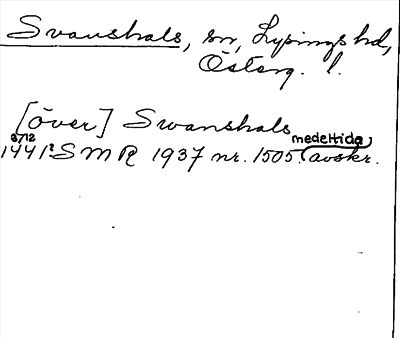 Svanshals, sn, Lysings hd,
Österg. l.
[över] Swanshals
8/12 medeltida
1441? SMR 1937 nr. 1505. (avskr.